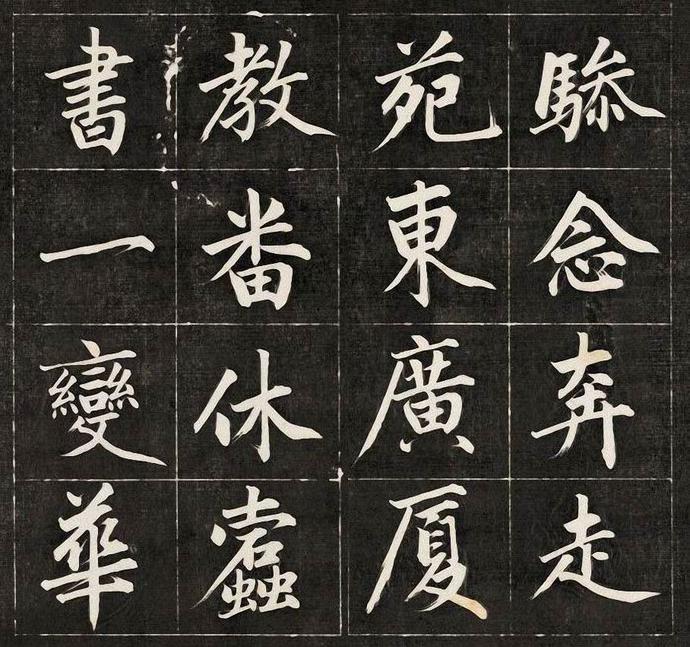 驂念奔走
苑東廣厦
教番休蠹
書一變華